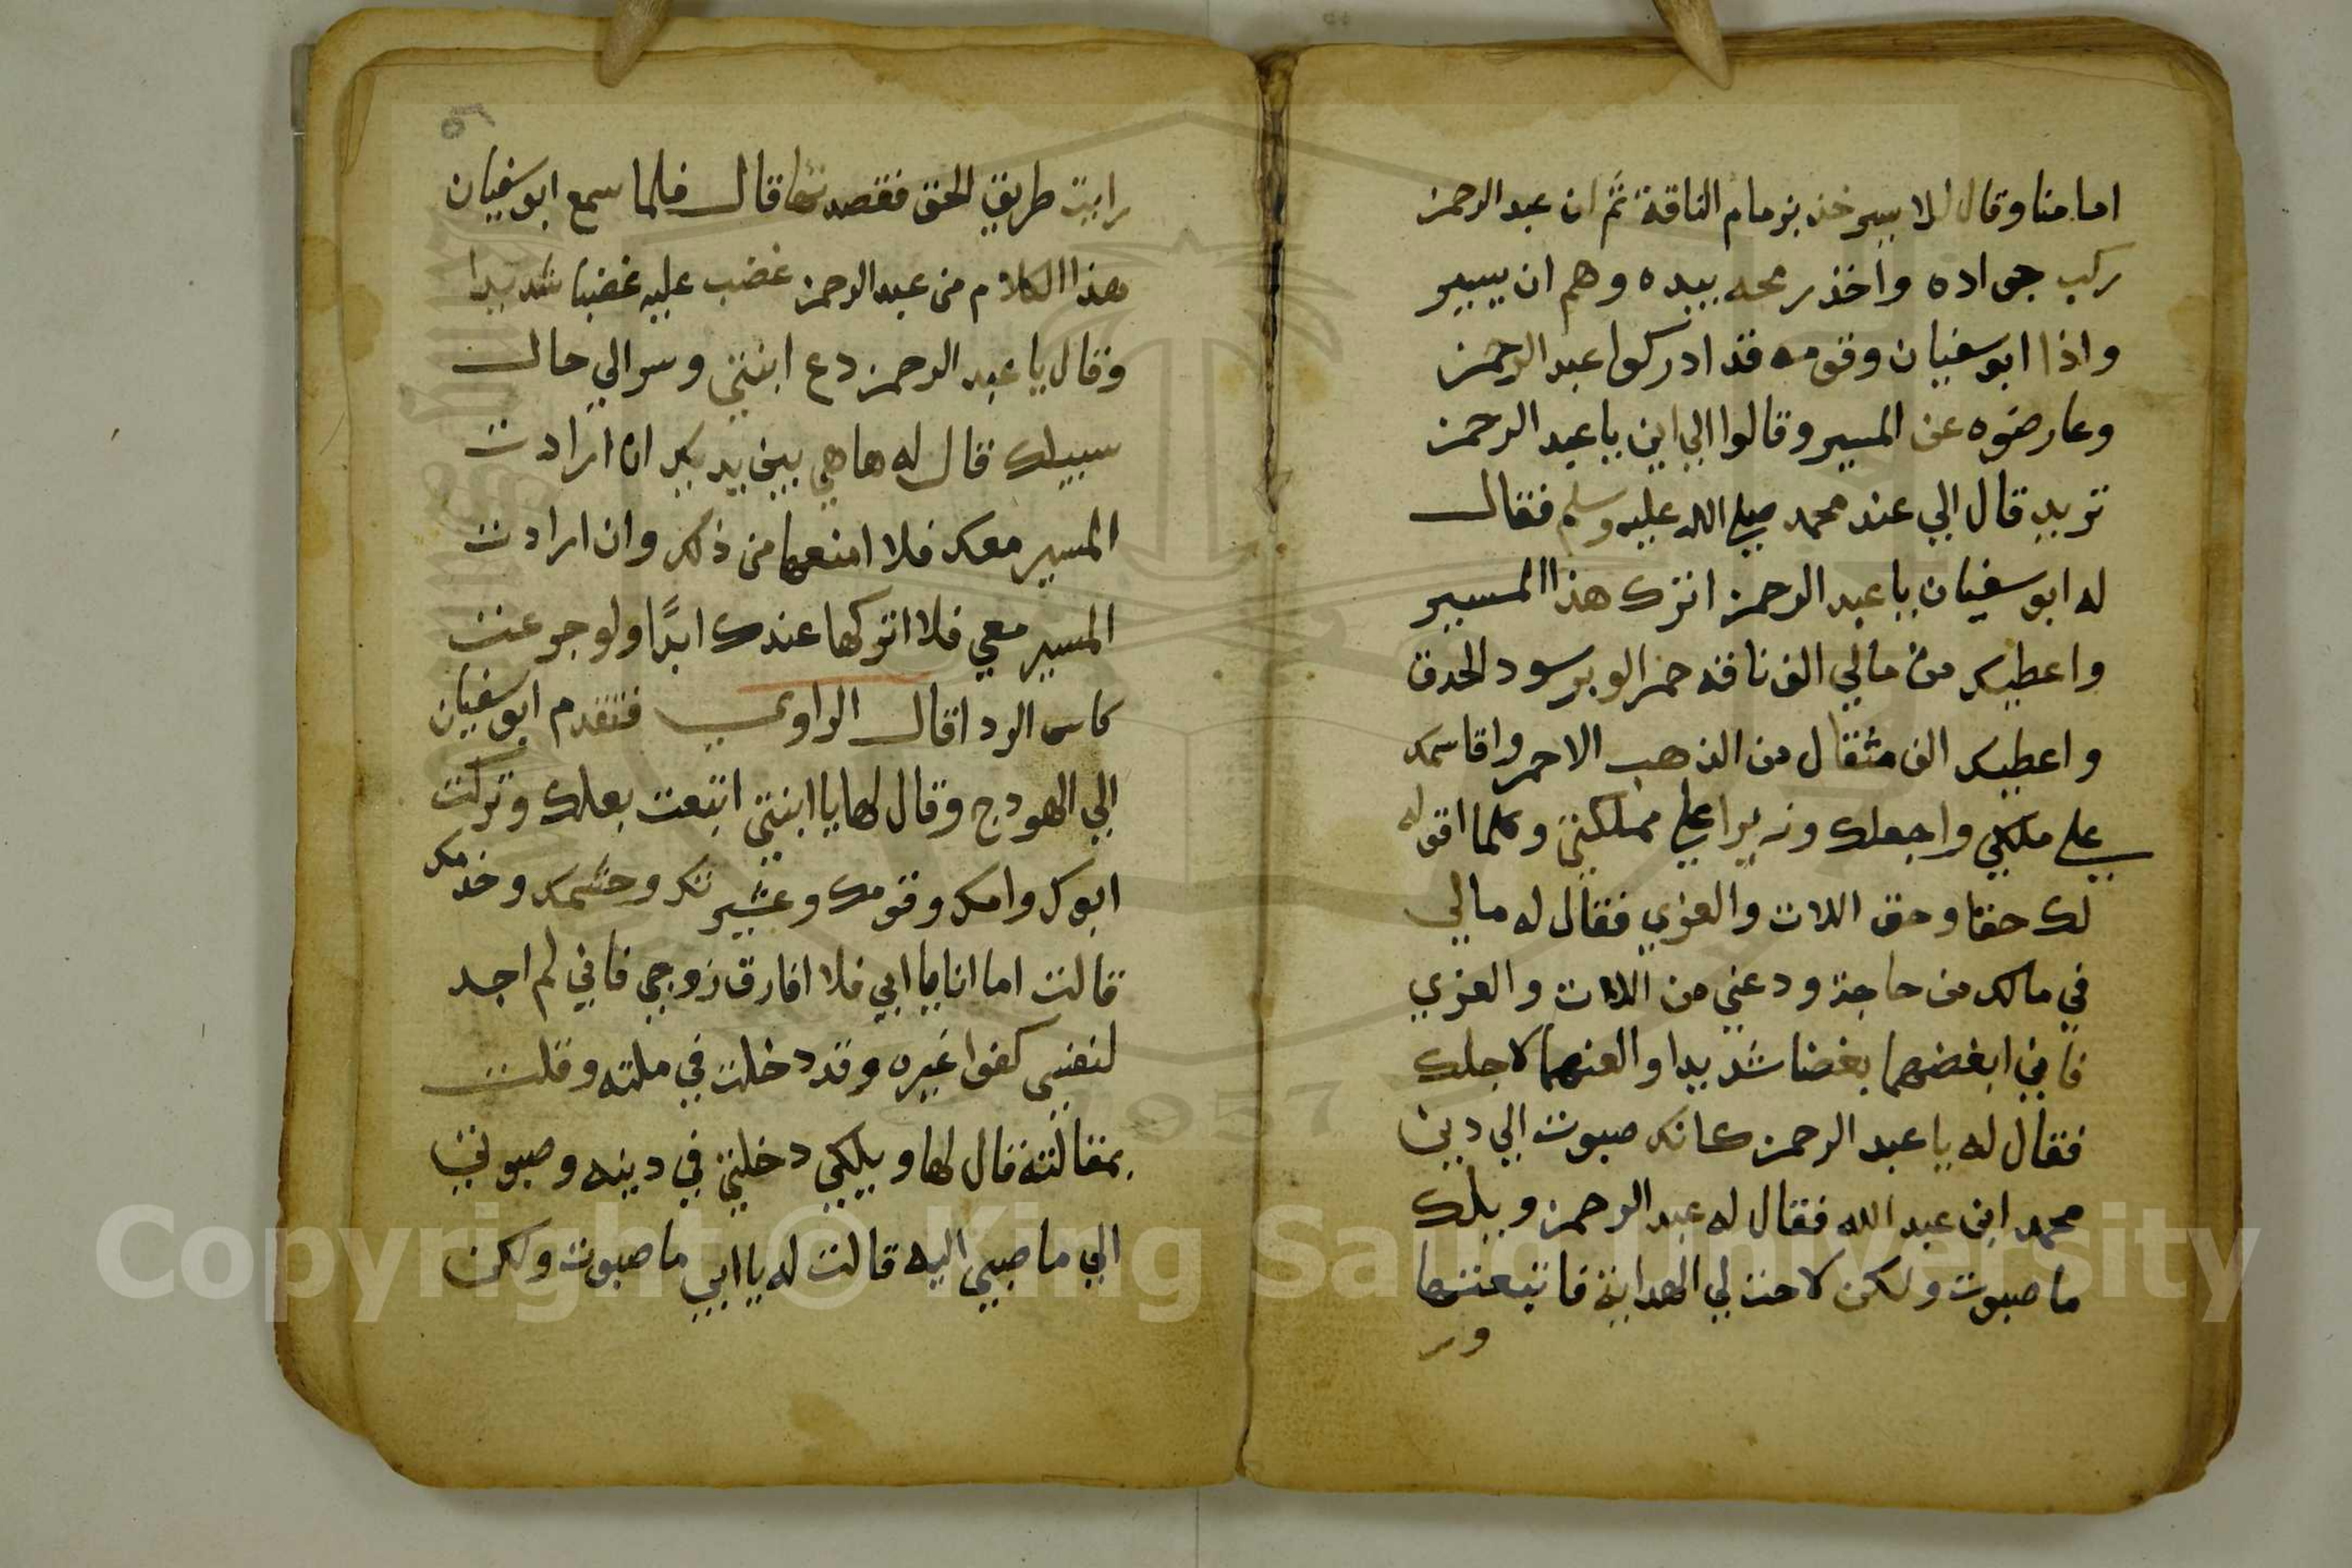 امامنا وقال للاسير خذ بزمام الناقة ثم ان عبد الرحمن
ركب جواده واخذ رمحه بيده وهم ان يسير
واذا ابو سفيان وقومه قد ادركوا عبد الرحمن
وعارضوه عن المسير وقالوا الي اين يا عبد الرحمن
تريد قال الي عند محمد صلي الله عليه وسلم فقال
له ابو سفيان يا عبد الرحمن اترك هذا المسير
واعطيك من مالي الف ناقه حمر الوبر سود الحدق
واعطيك الف مثقال من الذهب الاحمر واقاسمك
علي ملكي واجعلك وزيرا علي مملكتي وكلما اقوله
لك حقا وحق اللات والعزي فقال له مالي
في مالك من حاجة ودعني من اللات والعزي
فاني ابغضهما بغضا شديدا والعنهما لاجلك
فقال له يا عبد الرحمن كانك صبوت الي دين
محمد ابن عبد الله فقال له عبد الرحمن ويلك
ما صبوت ولكن لاحت لي الهداية فاتبعتها
ور
٢٥
رايت طريق الحق فقصدتها قال فلما سمع ابو سفيان
هذا الكلام من عبد الرحمن غضب عليه غضبا شديدا
وقال يا عبد الرحمن دع ابنتي وسر الي حال
سبيلك قال له ها هي بين يديك ان ارادت
المسير معك فلا امنعها من ذلك وان ارادت
المسير معي فلا اتركها عندك ابدًا ولو جرعت
كاس الردا قال الراوي فتقدم ابو سفيان
الي الهودج وقال لها يا ابنتي اتبعت بعلك وتركت
ابوك وامك وقومك وعشيرتك وحشمك وخدمك
قالت اما انا يا ابي فلا افارق زوجي فاني لم اجد
لنفسي كفوا غيره وقد دخلت في ملته وقلت
بمقالته قال لها ويلكي دخلتي في دينه وصبوتي
الي ما صبي اليه قالت له يا ابي ما صبوت ولكن
Copyright © King Saud University
1957